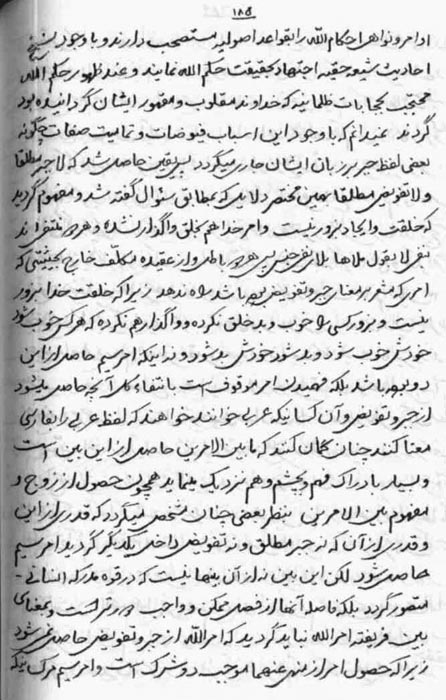 ۱۸۵
اوامر و نواهی احکام الله را بقواعد اصولیه مستصحب دارند و با وجود
احادیث شیعه حقیه اجتهاد بحقیقت حکم الله نمایند و عند ظهور حکم الله
محتجب بحجابات ظلمانیه که خداوند مقلوب و مقهور ایشان گردانیده بود
گردند نمیدانم که با وجود این اسباب فیوضات و تمامیت صفات چگونه
بعضی لفظ جبر بر زبان ایشان جاری میگردد پس یقین حاصل شد که لا جبر مطلقا
و لا تفویض مطلقا بهمین مختصر دلایل که مطابق سئوال گفته شد و مفهوم گردید
که خلقت و ایجاد بزور نیست و امر خدا هم بخلق واگذار نشده و هر دو منتفی اند
بنفی لا بقول ملاها بلای نفی جنس پس هر دو باطل و از عقیده مکلف خارج بحیثیتی که
امری که مشعر بر معنای جبر و تفویض بوده باشد راه ندهد زیرا که خلقت خدا بزور
نیست و بزور کسی را خوب و بد خلق نکرده و واگذار هم نکرده که هر کس خوب شود
خودش خوب شود و بد شود خودش بد شود و نه اینکه امر سیم حاصل از این
دو بوده باشد بلکه فهمیدن امر موقوف است بانتفاء کل آنچه حاصل میشود
از جبر و تفویض و آن کسانیکه عربی خوانند خواهند که لفظ عربی را بفارسی
معنا کنند چنان گمان کنند که ما بین الامرین حاصل از این بین است
و بسیار بادراک فهم و بچشم و هم نزدیک مینماید همچون حصول از زوج و
مفهوم بین الامرین بنظر بعضی چنان مشخص میگردد که قدری از این
و قدری از آن که نه جبر مطلق و نه تفویض داخل یکدیگر گردید امر سیم
حاصل شود لکن این بین نه از آن بینها نیست که در قوه مدرکه انسانی
متصور گردد بلکه فاصل آنها از فصل ممکن و واجب دورتر است و بمعنای
بین فریفته امر الله نباید گردید که امر الله از جبر و تفویض حاصل نمی شود
زیرا که حصول امر از منهی عنهما موجب دو شرک است و امر سیم مرک